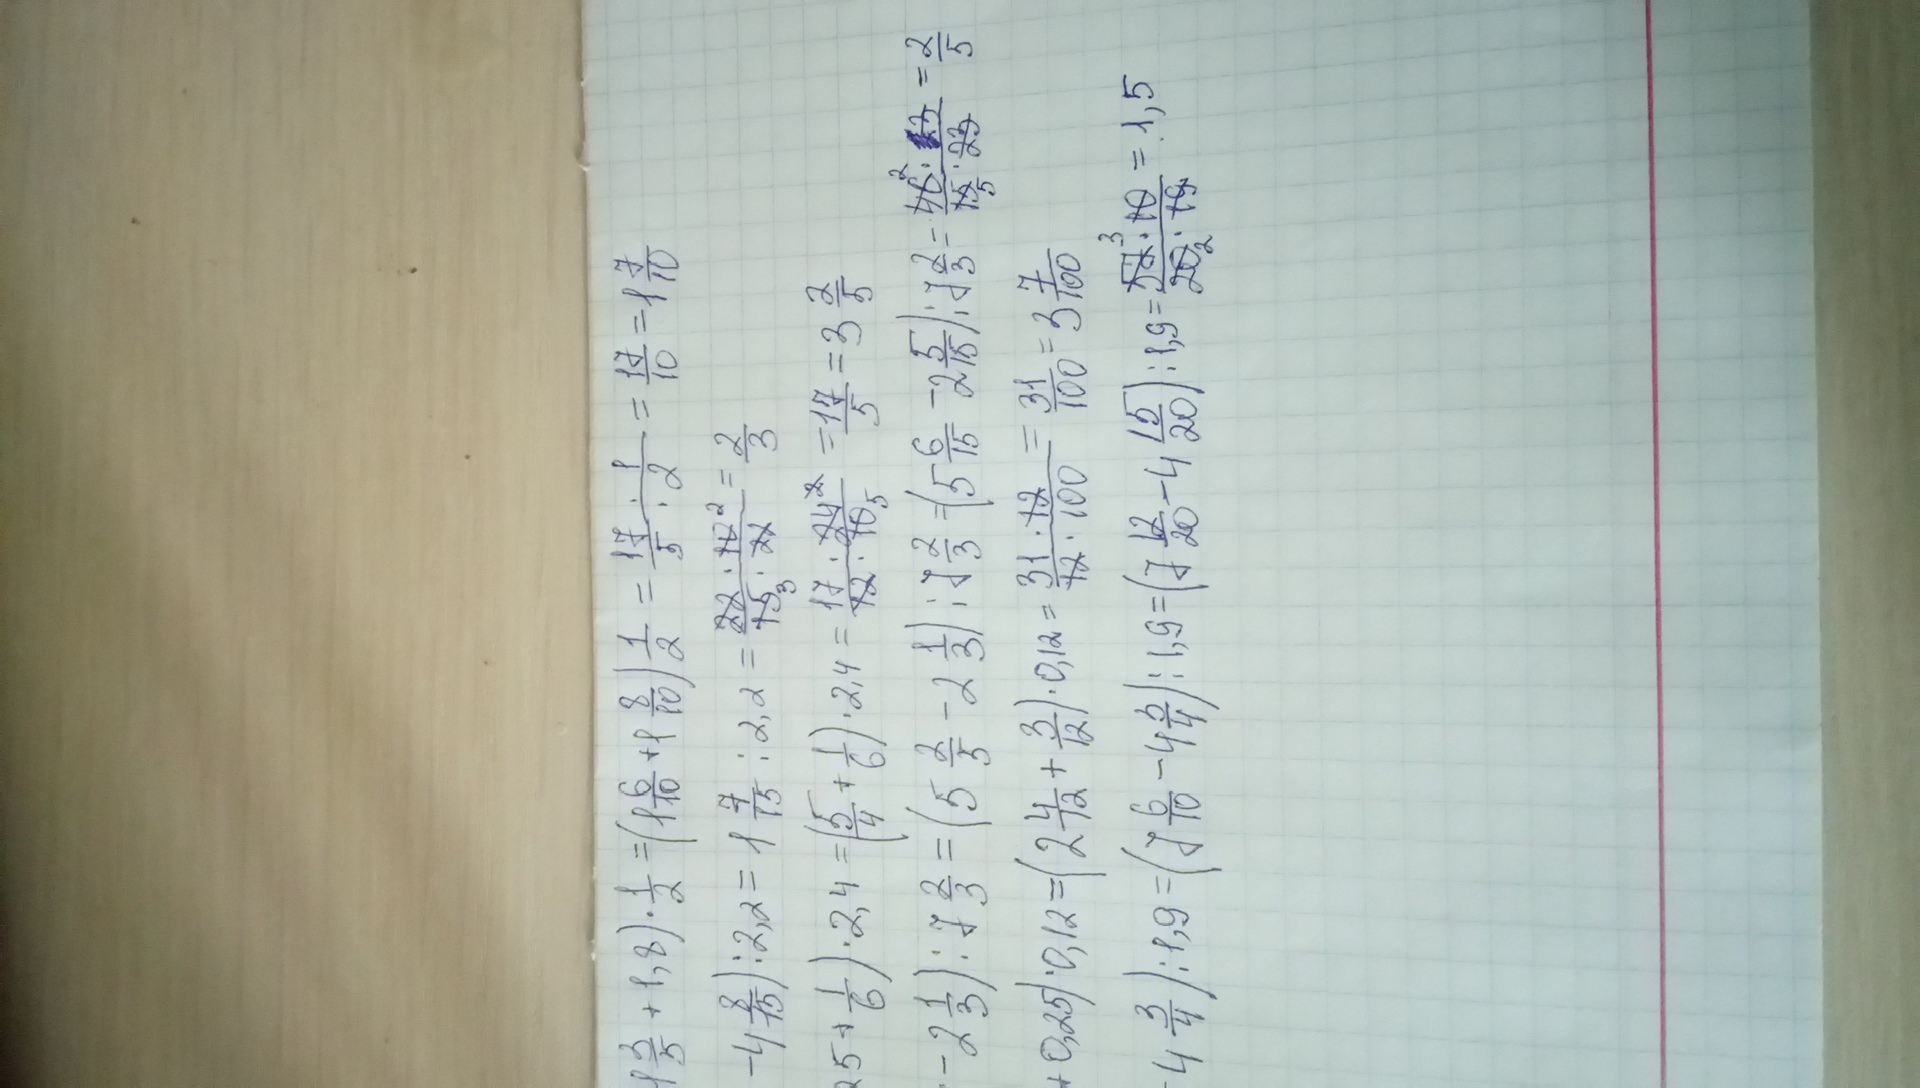 1 3/5 + 1,8) · 1/2 = (1 6/10 + 1 8/10) 1/2 = 17/5 · 1/2 = 17/10 = 1 7/10
- 4 8/15) : 2,2 = 1 7/15 : 2,2 = 22 · 10 2/15 3 · 22 = 2/3
25 + 1/6) · 2,4 = (5/4 + 1/6) · 2,4 = 17 · 24 2/12 · 10 5 = 17/5 = 3 2/5
- 2 1/3) : 7 2/3 = (5 2/5 - 2 1/3) : 7 2/3 = (5 6/15 - 2 5/15) : 7 2/3 = 46 2 · 3/15 5 · 23 = 2/5
+ 0,25) · 0,12 = (2 4/12 + 3/12) · 0,12 = 31 · 12/12 · 100 = 31/100 = 3 7/100
- 4 3/4) : 1,9 = (7 6/10 - 4 3/4) : 1,9 = (7 12/20 - 4 15/20) : 1,9 = 57 3 · 10/20 2 · 19 = 1,5